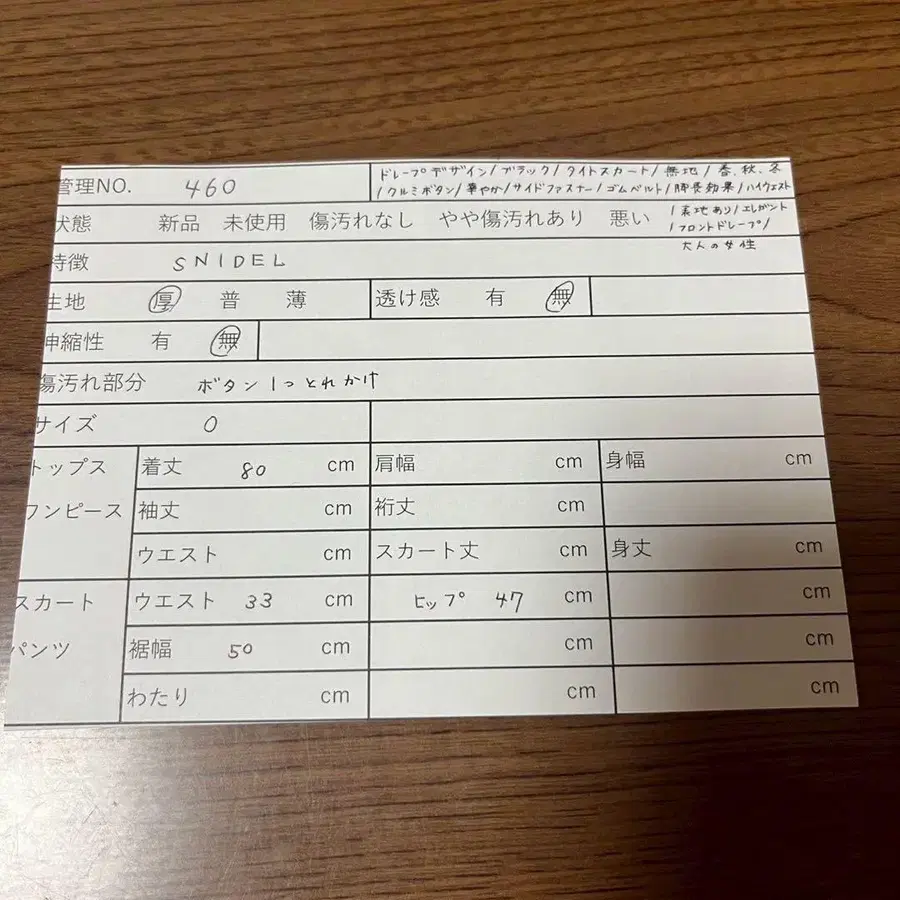 管理NO. 460
ドレープデザイン/ブラック/タイトスカート/無地/春、秋、冬
/クルミボタン/華やか/サイドファスナー/ゴムベルト/脚長効果/ハイウエスト
/裏地あり/エレガント
/フロントドレープ/
大人の女性
状態 新品 未使用 傷汚れなし やや傷汚れあり 悪い
特徴 SNIDEL
生地 厚 普 薄 透け感 有 無
伸縮性 有 無
傷汚れ部分 ボタン1つとれかけ
サイズ 0
トップス 着丈 80 cm 肩幅 cm 身幅 cm
ワンピース 袖丈 cm 裄丈 cm
ウエスト cm スカート丈 cm 身丈 cm
スカート ウエスト 33 cm ヒップ 47 cm cm
パンツ 裾幅 50 cm cm cm
わたり cm cm cm